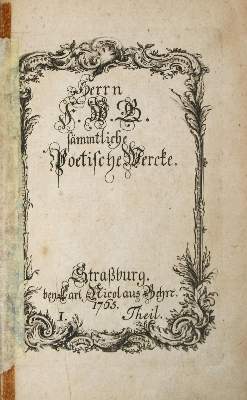 Herrn
sämmtliche
Poetische Wercke.
Straßburg.
bey Carl Nicolaus
1765.
I. Theil.